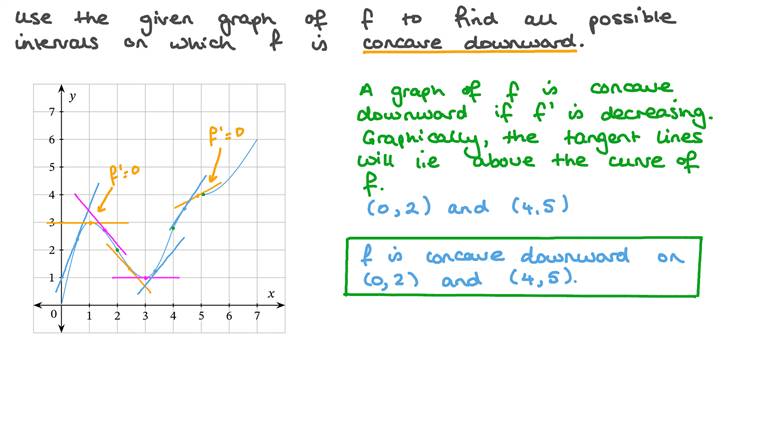 use the given graph of f to find all possible
intervals on which f is concave downward.
A graph of f is concave
downward if f' is decreasing.
Graphically, the tangent lines
will lie above the curve of
f.
(0,2) and (4,5)
f is concave downward on
(0,2) and (4,5).
y
7
6
5
4
3
2
1
f'=0
f'=0
x
0 1 2 3 4 5 6 7